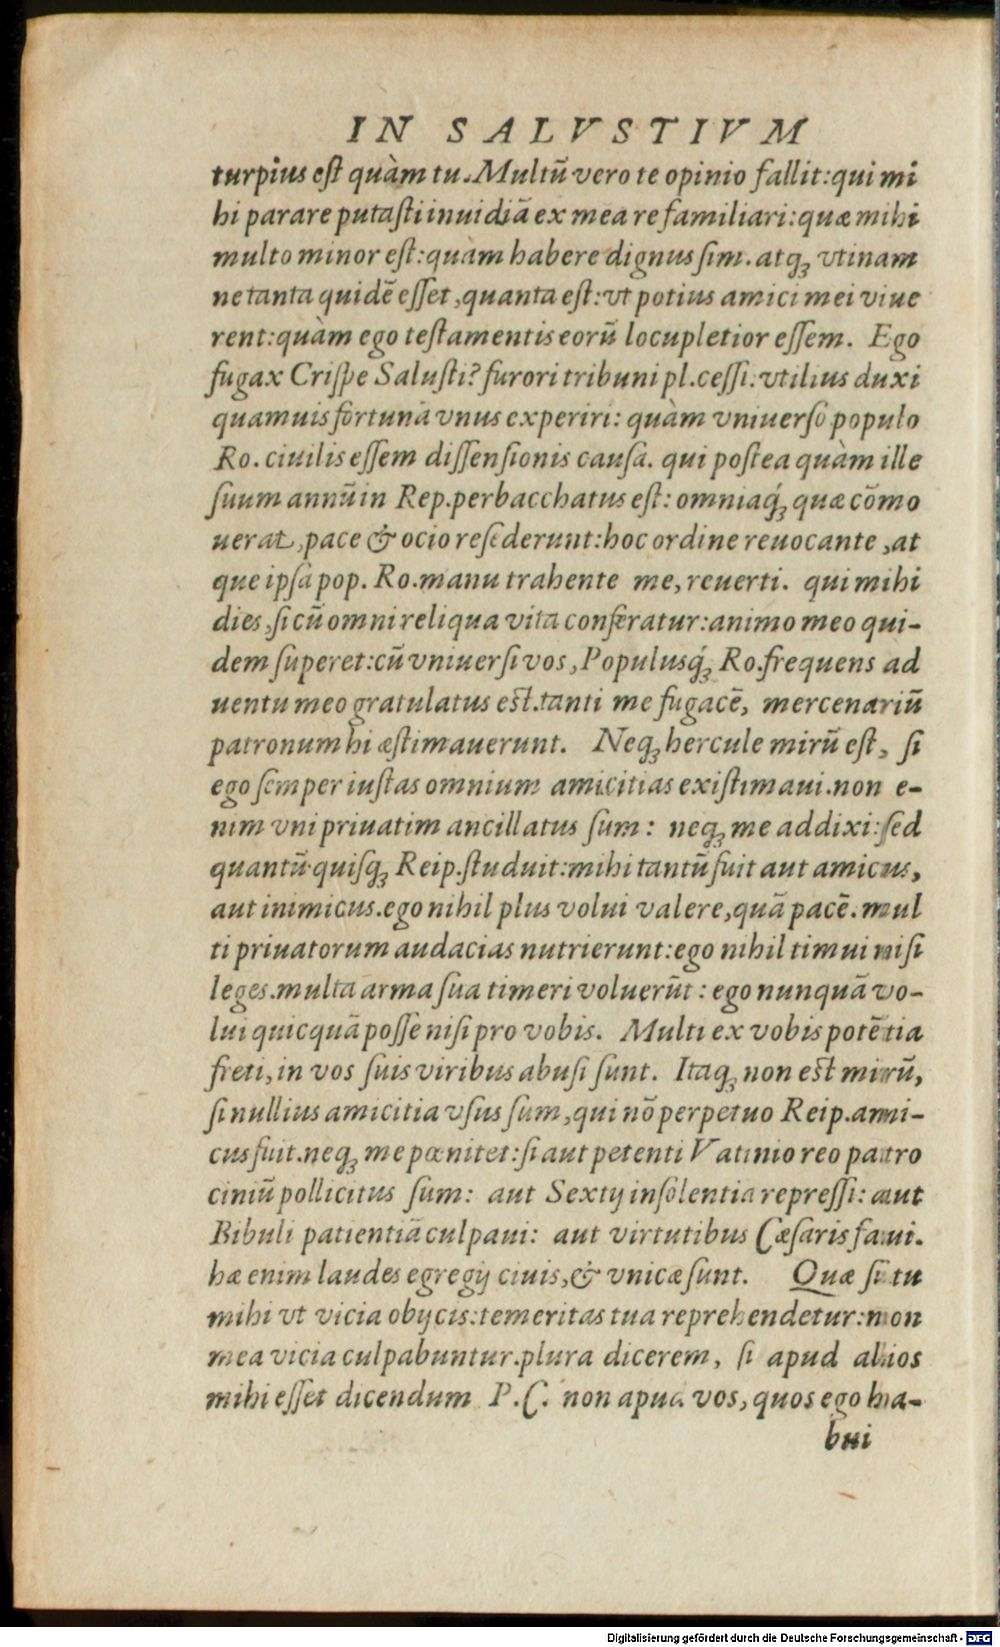 IN SALVSTIVM
turpius eſt quàm tu. Multũ vero te opinio fallit: qui mi
hi parare putaſti inuidiã ex mea re familiari: quæ mihi
multo minor eſt: quàm habere dignus ſim. atq́ꝫ vtinam
ne tanta quidẽ eſſet, quanta eſt: vt potius amici mei viue
rent: quàm ego teſtamentis eorũ locupletior eſſem. Ego
fugax Criſpe Saluſti? furori tribuni pl. ceſſi: vtilius duxi
quamuis fortunã vnus experiri: quàm vniuerſo populo
Ro. ciuilis eſſem diſſenſionis cauſa. qui poſtea quàm ille
ſuum annũ in Rep. perbacchatus eſt: omniaq́ꝫ quæ cõmo
uerat, pace & ocio reſederunt: hoc ordine reuocante, at
que ipſa pop. Ro. manu trahente me, reuerti. qui mihi
dies, ſi cũ omni reliqua vita conferatur: animo meo qui-
dem ſuperet: cũ vniuerſi vos, Populusq́ꝫ Ro. frequens ad
uentu meo gratulatus eſt. tanti me fugacẽ, mercenariũ
patronum hi æſtimauerunt. Neqꝫ hercule mirũ eſt, ſi
ego ſemper iuſtas omnium amicitias exiſtimaui. non e-
nim vni priuatim ancillatus ſum: neqꝫ me addixi: ſed
quantũ quiſqꝫ Reip. ſtuduit: mihi tantũ fuit aut amicus,
aut inimicus. ego nihil plus volui valere, quã pacẽ. mul
ti priuatorum audacias nutrierunt: ego nihil timui niſi
leges. multa arma ſua timeri voluerũt: ego nunquã vo-
lui quicquã poſſe niſi pro vobis. Multi ex vobis potẽtia
freti, in vos ſuis viribus abuſi ſunt. Itaqꝫ non eſt mirũ,
ſi nullius amicitia vſus ſum, qui nõ perpetuo Reip. ami-
cus fuit. neqꝫ me pœnitet: ſi aut petenti Vatinio reo patro
ciniũ pollicitus ſum: aut Sextij inſolentia repreſſi: aut
Bibuli patientiã culpaui: aut virtutibus Cæſaris faui.
hæ enim laudes egregij ciuis, & vnicæ ſunt. Quæ ſi tu
mihi vt vicia obijcis: temeritas tua reprehendetur: non
mea vicia culpabuntur. plura dicerem, ſi apud alios
mihi eſſet dicendum P. C. non apud vos, quos ego ha-
bui
Digitalisierung gefördert durch die Deutsche Forschungsgemeinschaft - DFG